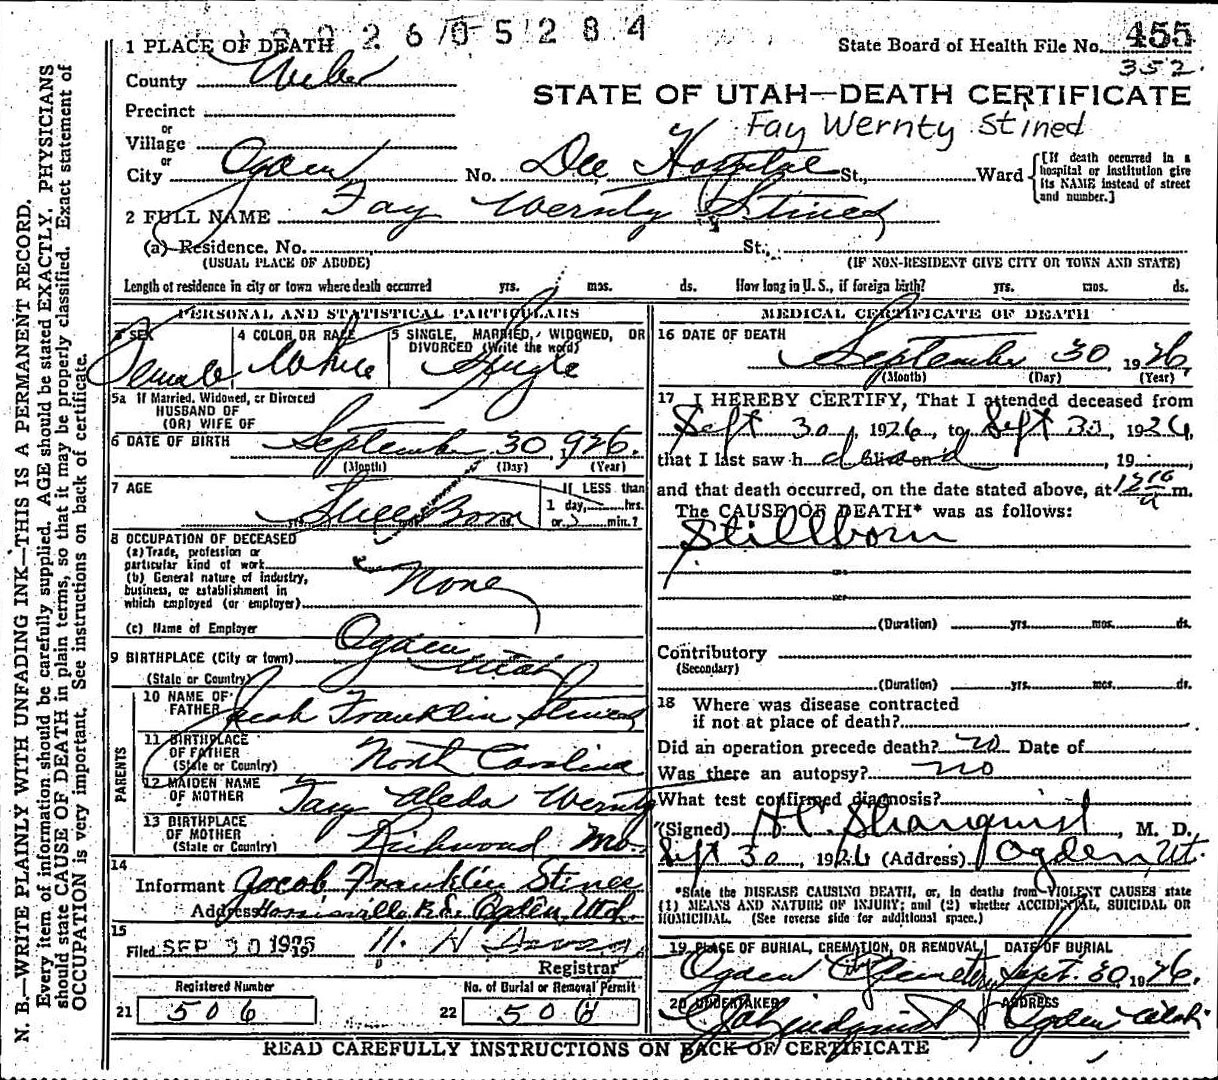 1926005284
1 PLACE OF DEATH
State Board of Health File No. 455
352.
County Weber
STATE OF UTAH—DEATH CERTIFICATE
Precinct
or
Fay Wernty Stined
Village
or
City Ogden No. Dee Hospital St., Ward [If death occurred in a hospital or institution give its NAME instead of street and number.]
2 FULL NAME Fay Wernty Stined
(a) Residence. No. St.,
(USUAL PLACE OF ABODE) (IF NON-RESIDENT GIVE CITY OR TOWN AND STATE)
Length of residence in city or town where death occurred yrs. mos. ds. How long in U. S., if foreign birth? yrs. mos. ds.
PERSONAL AND STATISTICAL PARTICULARS
3 SEX 4 COLOR OR RACE 5 SINGLE, MARRIED, WIDOWED, OR
DIVORCED (Write the word)
Female White Single
5a If Married, Widowed, or Divorced
HUSBAND OF
(OR) WIFE OF
6 DATE OF BIRTH September 30, 1926.
(Month) (Day) (Year)
7 AGE If LESS than
1 day, hrs.
Still Born yrs. mos. ds. or min.?
8 OCCUPATION OF DECEASED
(a) Trade, profession or
particular kind of work
(b) General nature of industry,
business, or establishment in
which employed (or employer) None
(c) Name of Employer
9 BIRTHPLACE (City or town) Ogden
(State or Country) Utah
PARENTS
10 NAME OF
FATHER Jacob Franklin Stined
11 BIRTHPLACE
OF FATHER
(State or Country) North Carolina
12 MAIDEN NAME
OF MOTHER Fay Aleda Wernty
13 BIRTHPLACE
OF MOTHER
(State or Country) Richwood Mo.
14
Informant Jacob Franklin Stined
Address Harrisville R.D. Ogden, Utah.
15
Filed SEP 30 1926
Registrar
Registered Number No. of Burial or Removal Permit
21 506 22 506
MEDICAL CERTIFICATE OF DEATH
16 DATE OF DEATH
September 30 1926,
(Month) (Day) (Year)
17 I HEREBY CERTIFY, That I attended deceased from
Sept 30, 1926, to Sept 30, 1926,
that I last saw h dead alive on , 19 ,
and that death occurred, on the date stated above, at 12 10 a m.
The CAUSE OF DEATH* was as follows:
Stillborn
(Duration) yrs. mos. ds.
Contributory
(Secondary)
(Duration) yrs. mos. ds.
18 Where was disease contracted
if not at place of death?
Did an operation precede death? no Date of
Was there an autopsy? no
What test confirmed diagnosis?
(Signed) H C Stranquist, M. D.
Sept 30, 1926 (Address) Ogden Ut.
*State the DISEASE CAUSING DEATH, or, in deaths from VIOLENT CAUSES state
(1) MEANS AND NATURE OF INJURY; and (2) whether ACCIDENTAL, SUICIDAL OR
HOMICIDAL. (See reverse side for additional space.)
19 PLACE OF BURIAL, CREMATION, OR REMOVAL DATE OF BURIAL
Ogden City Cemetery Sept. 30 1926.
20 UNDERTAKER ADDRESS
Lindquist Ogden Utah
READ CAREFULLY INSTRUCTIONS ON BACK OF CERTIFICATE
N. B.—WRITE PLAINLY WITH UNFADING INK—THIS IS A PERMANENT RECORD.
Every item of information should be carefully supplied. AGE should be stated EXACTLY. PHYSICIANS
should state CAUSE OF DEATH in plain terms, so that it may be properly classified. Exact statement of
OCCUPATION is very important. See instructions on back of certificate.